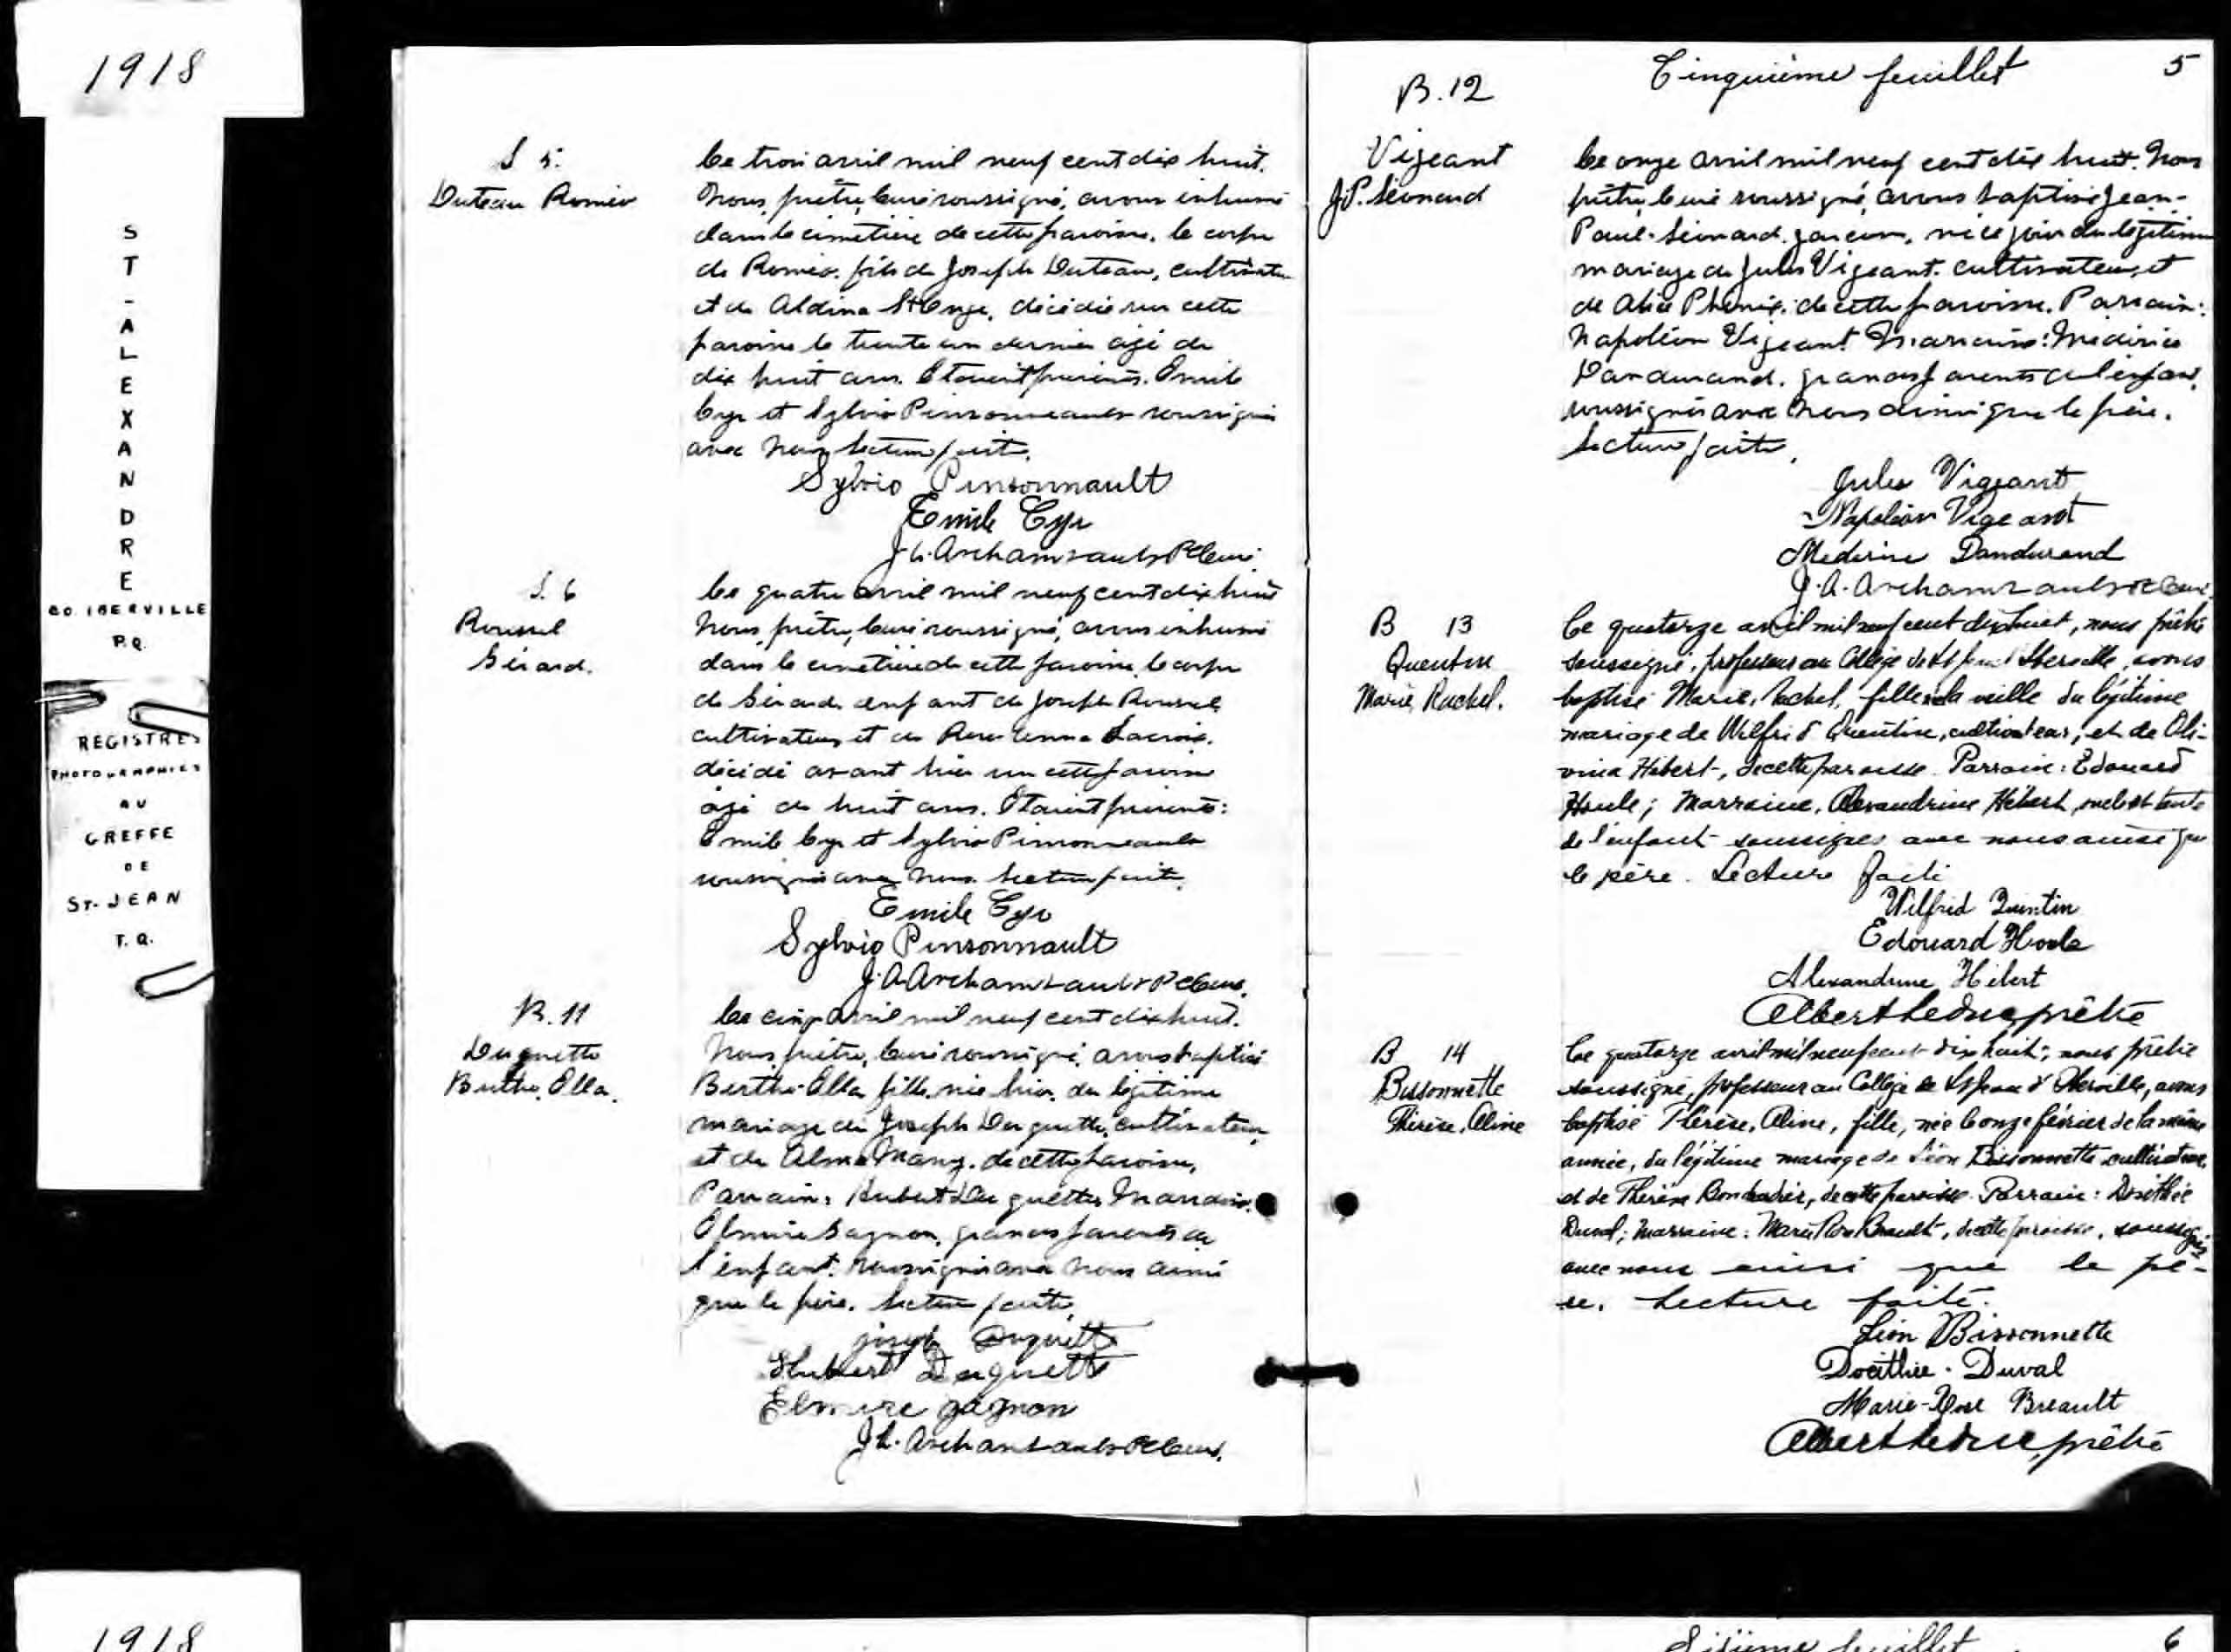 1918
ST-ALEXANDRE
CO. IBERVILLE
P.Q.
REGISTRES
PHOTOGRAPHIES
AU
GREFFE
DE
ST-JEAN
P.Q.
S 5.
Duteau Roméo
Ce trois avril mil neuf cent dix huit.
Nous, prêtre, curé soussigné, avons inhumé
dans le cimetière de cette paroisse, le corps
de Roméo, fils de Joseph Duteau, cultivateur
et de Aldina St Onge, décédé en cette
paroisse le trente un dernier âgé de
dix huit ans. Etaient présents. Emile
Cyr et Sylvio Pinsonneault soussignés
avec nous. Lecture faite.
Sylvio Pinsonnault
Emile Cyr
J.A. Archambault Ptre Curé.
S. 6
Roussel
Gérard.
Ce quatre avril mil neuf cent dix huit
Nous, prêtre, curé soussigné, avons inhumé
dans le cimetière de cette paroisse, le corps
de Gérard enfant de Joseph Roussel
cultivateur et de Rose Anna Lacroix.
décédé avant hier en cette paroisse
âgé de huit ans. Etaient présents:
Emile Cyr et Sylvio Pinsonneault
soussignés avec nous. Lecture faite.
Emile Cyr
Sylvio Pinsonnault
J.A. Archambault Ptre Curé.
B. 11
Duquette
Berthe, Ella.
Ce cinq avril mil neuf cent dix huit.
Nous, prêtre, curé soussigné, avons baptisé
Berthe-Ella, fille, née hier, du légitime
mariage de Joseph Duquette, cultivateur,
et de Alma, de cette paroisse,
Parrain: Hubert Duquette, Marraine:
Elmire Gagnon, grands parents de
l'enfant, soussignés avec nous ainsi
que le père. Lecture faite.
Joseph Duquette
Hubert Duquette
Elmire Gagnon
J.A. Archambault Ptre Curé.
Cinquième feuillet 5
B. 12
Vigeant
J.P. Léonard
Ce onze avril mil neuf cent dix huit. Nous
prêtre, curé soussigné, avons baptisé Jean-
Paul-Léonard, garçon, né ce jour du légitime
mariage de Jules Vigeant, cultivateur, et
de Alice Phénix, de cette paroisse. Parrain:
Napoléon Vigeant. Marraine: Médérise
Dandurand, grands parents de l'enfant,
soussignés avec nous ainsi que le père.
Lecture faite.
Jules Vigeant
Napoléon Vigeant
Mederise Dandurand
J.A. Archambault Ptre Curé.
B 13
Quentin
Marie, Rachel.
Ce quatorze avril mil neuf cent dix huit, nous prêtre
soussigné, professeur au Collège de St Jean d'Iberville, avons
baptisé Marie, Rachel, fille, née la veille du légitime
mariage de Wilfrid Quentin, cultivateur, et de Oli-
vina Hébert, de cette paroisse. Parrain: Edouard
Houle; Marraine, Alexandrine Hébert, oncle et tante
de l'enfant soussignés avec nous ainsi que
le père. Lecture faite
Wilfrid Quintin
Edouard Houle
Alexandrine Hébert
Albert Leduc, prêtre
B 14
Bissonnette
Thérèse, Aline
Ce quatorze avril mil neuf cent dix huit, nous prêtre
soussigné, professeur au Collège de St Jean d'Iberville, avons
baptisé Thérèse, Aline, fille, née le onze février de la même
année, du légitime mariage de Léon Bissonnette cultivateur,
et de Thérèse, de cette paroisse. Parrain: Dosithée
Duval; Marraine: Marie Rose Breault, de cette paroisse, soussignés
avec nous ainsi que le pè-
re. Lecture faite.
Léon Bissonnette
Docithée. Duval
Marie-Rose Breault
Albert Leduc, prêtre
1918
Sixième feuillet 6